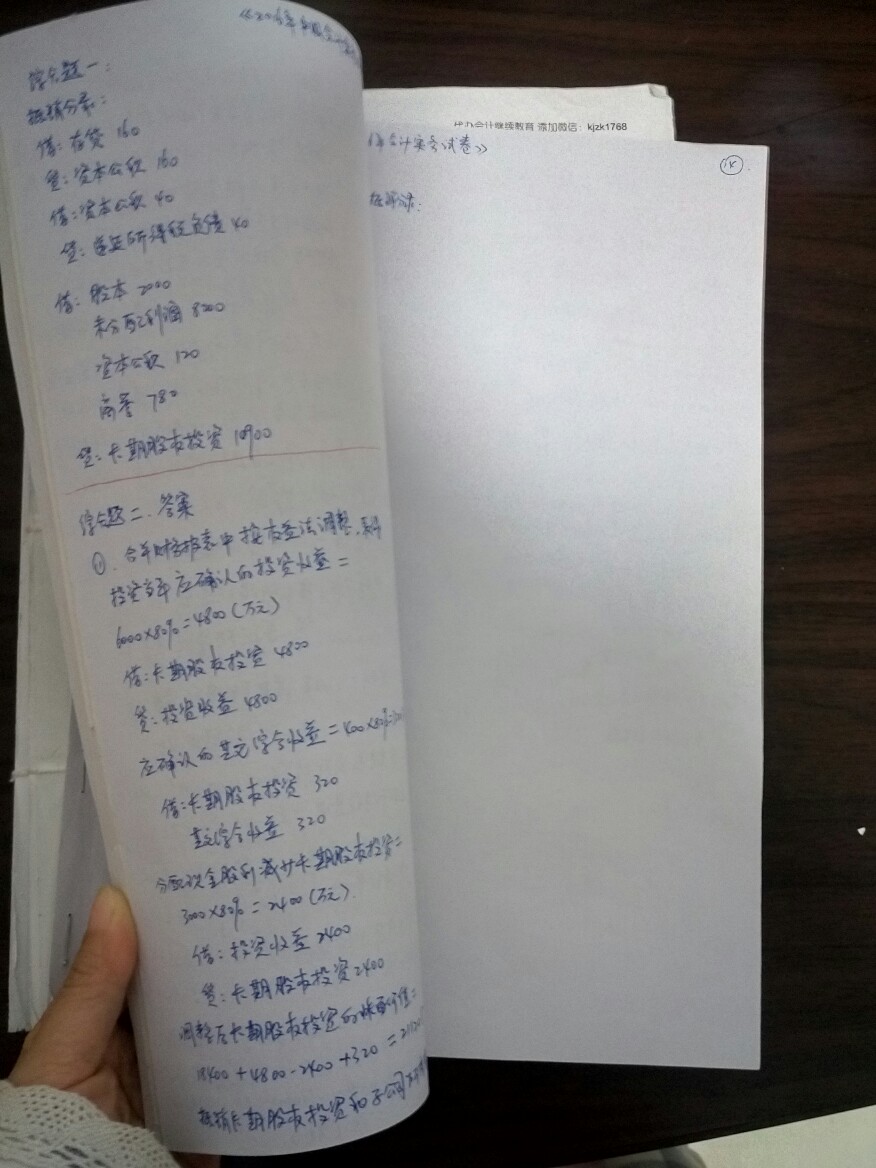 综合题一：
抵销分录：
借：存货 160
贷：资本公积 160
借：资本公积 40
贷：递延所得税负债 40
借：股本 2000
未分配利润 8200
资本公积 120
商誉 780
贷：长期股权投资 10900
综合题二、答案
(1)、合并财务报表中按权益法调整，取得
投资当年应确认的投资收益＝
6000×80%＝4800（万元）
借：长期股权投资 4800
贷：投资收益 4800
应确认的其他综合收益＝400×80%＝
借：长期股权投资 320
其他综合收益 320
分配现金股利减少长期股权投资＝
3000×80%＝2400（万元）.
借：投资收益 2400
贷：长期股权投资 2400
调整后长期股权投资的账面价值＝
18400+4800-2400+320＝
抵销长期股权投资和子公司
代办会计继续教育 添加微信：kjzk1768
会计实务试卷》